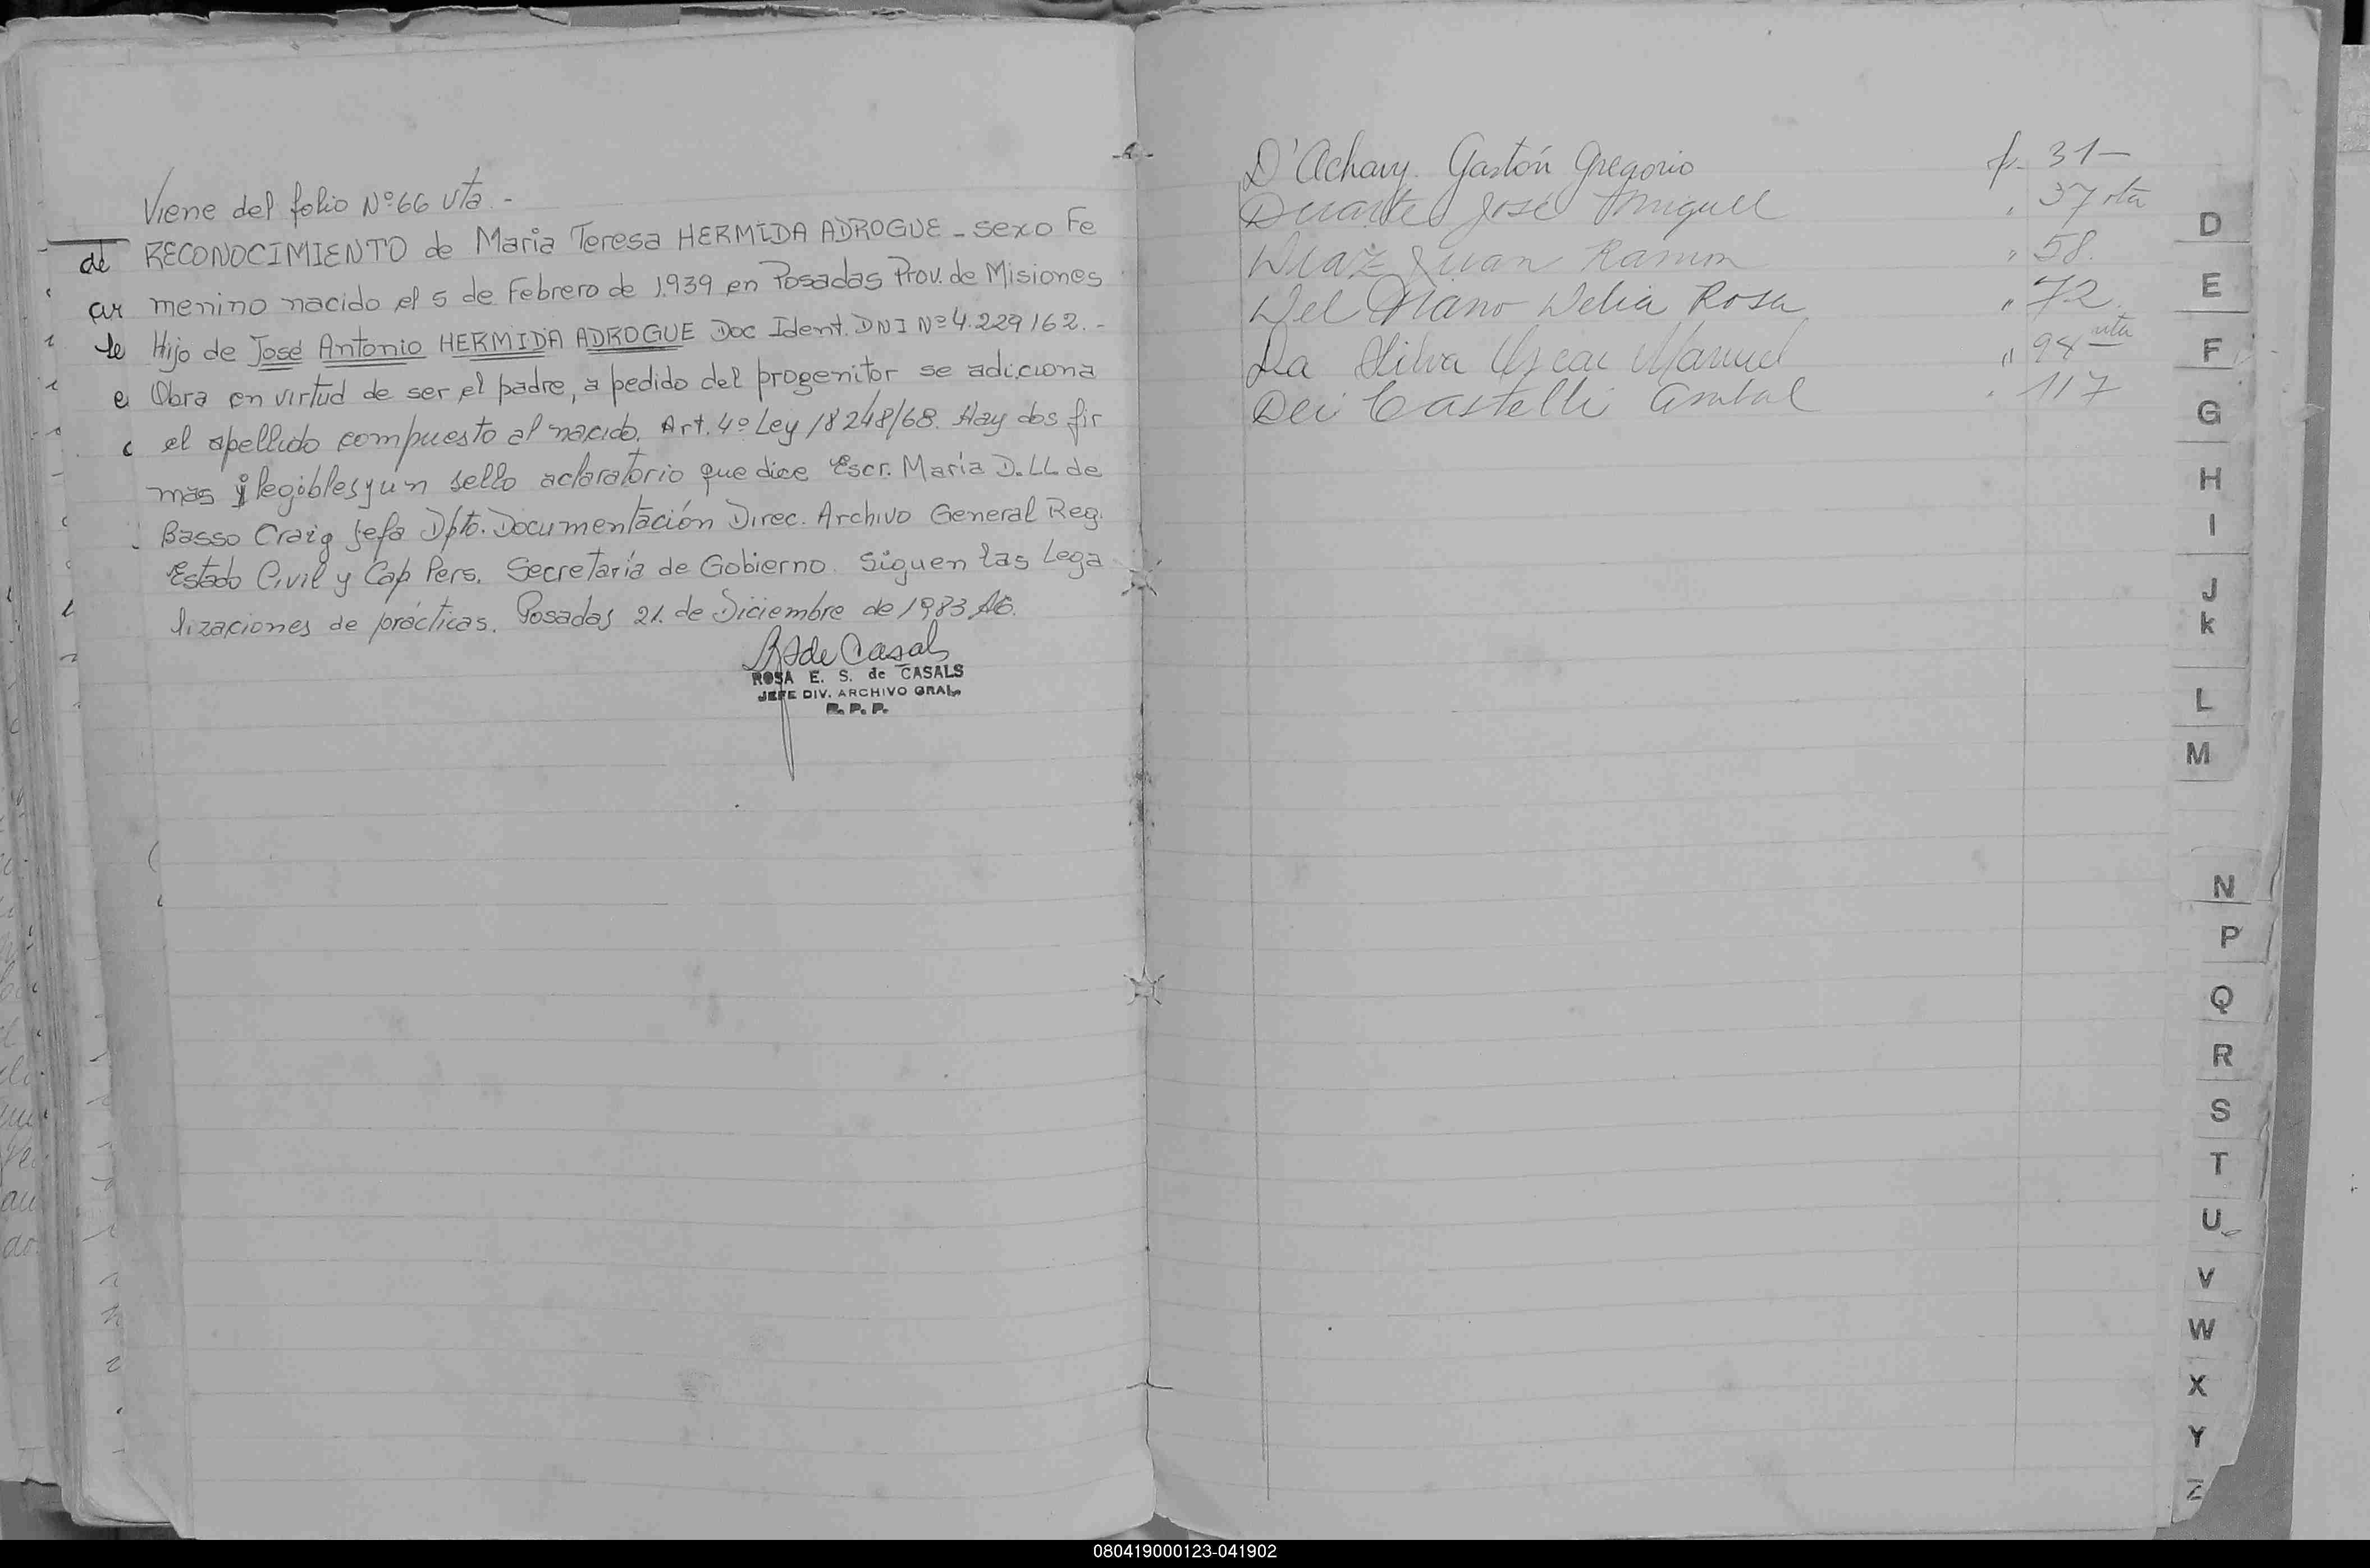 Viene del folio Nº 66 vta. -
RECONOCIMIENTO de Maria Teresa HERMIDA ADROGUE - sexo Fe
menino nacido el 5 de Febrero de 1.939 en Posadas Prov. de Misiones
Hijo de José Antonio HERMIDA ADROGUE Doc Ident. DNI Nº 4.229162. -
Obra en virtud de ser el padre, a pedido del progenitor se adiciona
el apellido compuesto al nacido. Art. 4º Ley 18248/68. Hay dos fir
mas ilegibles y un sello aclaratorio que dice Escr. María D. LL de
Basso Craig Jefa Dpto. Documentación Direc. Archivo General Reg.
Estado Civil y Cap Pers. Secretaría de Gobierno. Siguen las Lega
lizaciones de prácticas. Posadas 21 de Diciembre de 1983
de Casals
ROSA E. S. de CASALS
JEFE DIV. ARCHIVO GRAL.
R. P. P.
de
ar
le
e
c
D'Achary. Gastón Gregorio f. 31-
Duarte José Miguel " 37 vta
Diaz Juan Ramon " 58.
Del Piano Delia Rosa " 72.
Da Silva Oscar Manuel " 94 vta
Dei Castelli Anibal " 117
D
E
F
G
H
I
J
k
L
M
N
P
Q
R
S
T
U
V
W
X
Y
Z
080419000123-041902